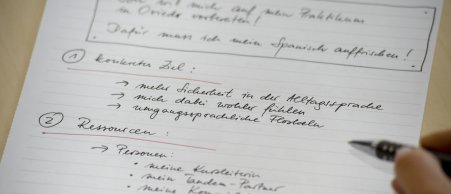 mich auf mein Praktikum
in Oviedo vorbereiten!
Dafür muss ich mein Spanisch auffrischen!
① Konkretes Ziel:
→ mehr Sicherheit in der Alltagssprache
→ mich dabei wohler fühlen
→ umgangssprachliche Floskeln
② Ressourcen:
→ Personen:
• meine Kursleiterin
• mein Tandem-Partner
• meine